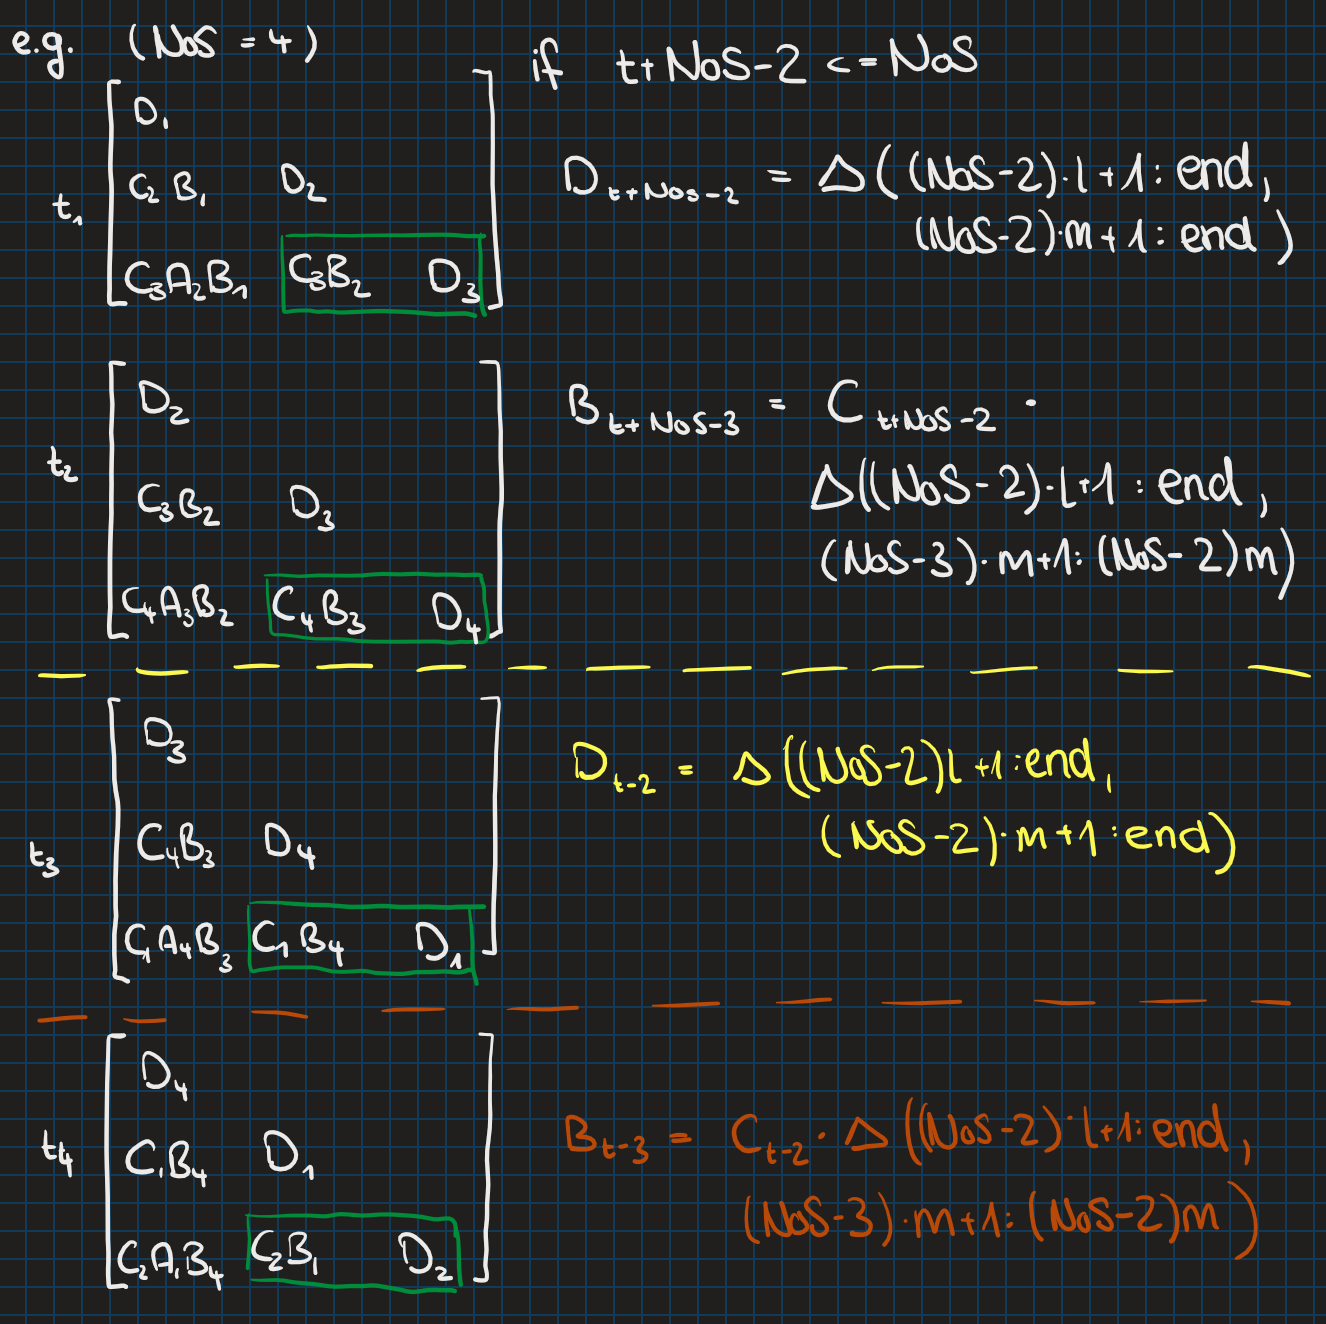 e.g. (NoS = 4)
if t+NoS-2 <= NoS
t₁
D₁
C₂B₁ D₂
C₃A₂B₁ C₃B₂ D₃
D_{t+NoS-2} = Δ((NoS-2)·l+1:end,
(NoS-2)·m+1:end)
t₂
D₂
C₃B₂ D₃
C₄A₃B₂ C₄B₃ D₄
B_{t+NoS-3} = C_{t+NoS-2} ·
Δ((NoS-2)·l+1:end,
(NoS-3)·m+1:(NoS-2)m)
t₃
D₃
C₄B₃ D₄
C₁A₄B₃ C₁B₄ D₁
D_{t-2} = Δ((NoS-2)l+1:end,
(NoS-2)·m+1:end)
t₄
D₄
C₁B₄ D₁
C₂A₁B₄ C₂B₁ D₂
B_{t-3} = C_{t-2}·Δ((NoS-2)·l+1:end,
(NoS-3)·m+1:(NoS-2)m)